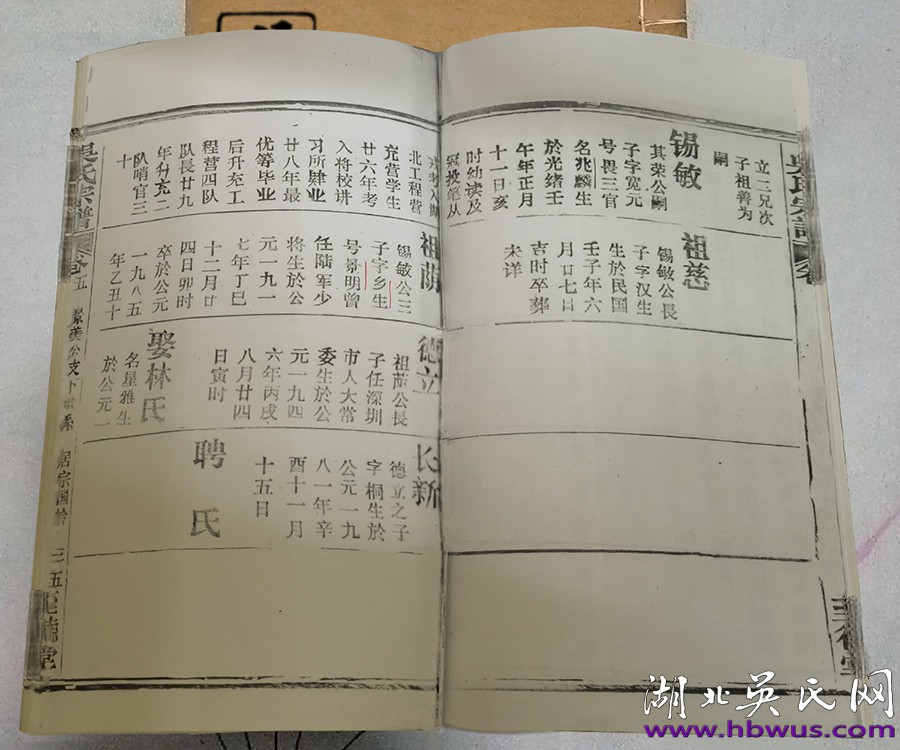 立二兄次
子祖善为
嗣
锡敏
其荣公嗣
子字宽元
号畏三官
名兆麟生
於光绪壬
午年正月
十一日亥
时幼读及
冠投笔从
祖慈
锡敏公長
子字汉生
生於民国
壬子年六
月廿七日
吉时卒葬
未详
北工程营
充营学生
廿六年考
入将校讲
习所肄业
廿八年最
优等毕业
后升充工
程营四队
队長廿九
年分充二
队哨官三
十
祖荫
锡敏公三
子字乡生
号景明曾
任陆军少
将生於公
元一九一
七年丁巳
十二月廿
四日卯时
卒於公元
一九八五
年乙丑十
德立
祖荫公長
子任深圳
市人大常
委生於公
元一九四
六年丙戌
八月廿四
日寅时
娶林氏
名星雅生
於公元一
长新
德立之子
字桐生於
公元一九
八一年辛
酉十一月
十五日
聘氏
吴氏宗谱
卷五
三五
至德堂
湖北吴氏网
www.hbwus.com